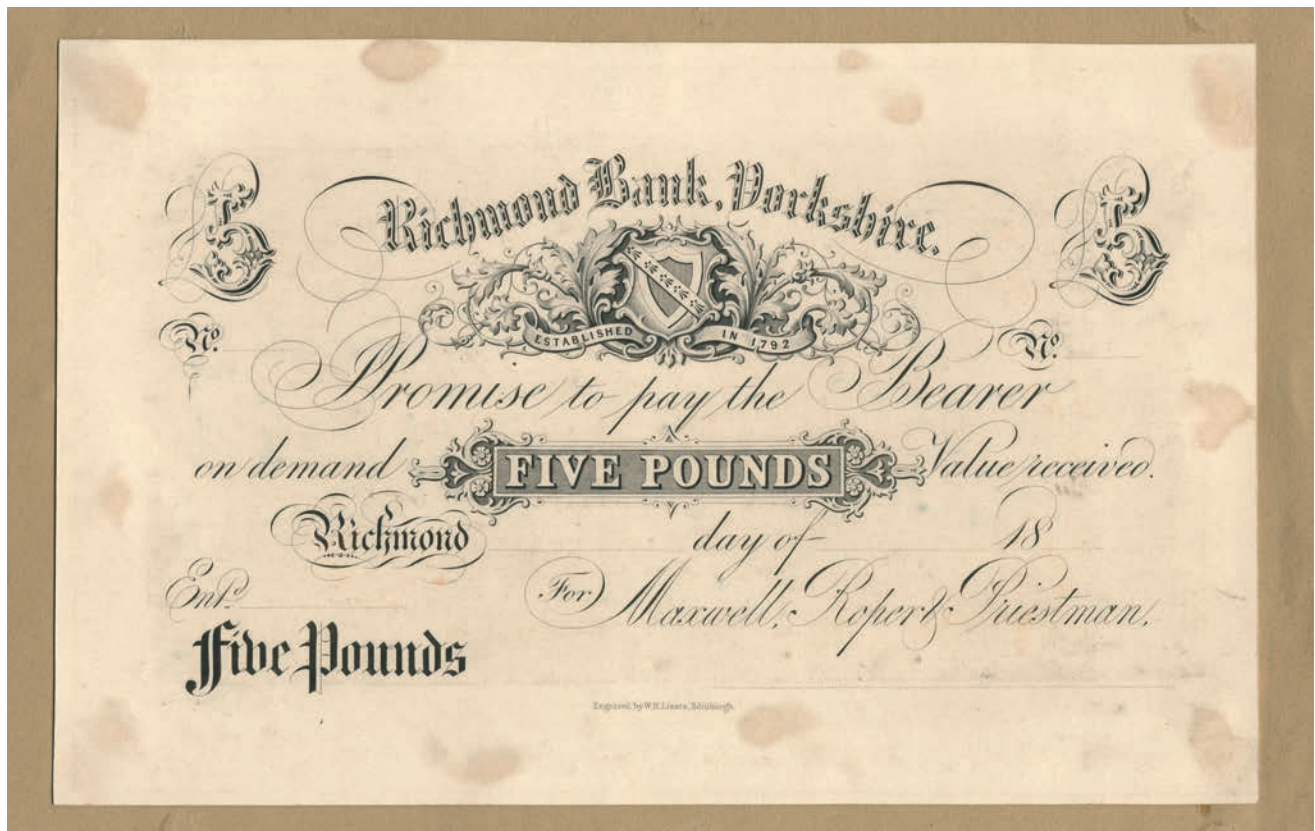 Richmond Bank, Yorkshire.
£5 £5
ESTABLISHED IN 1792
No. No.
Promise to pay the Bearer
on demand FIVE POUNDS Value received.
Richmond day of 18
Entd.
For Maxwell, Roper & Priestman.
Five Pounds
Engraved by W.H. Lizars, Edinburgh.